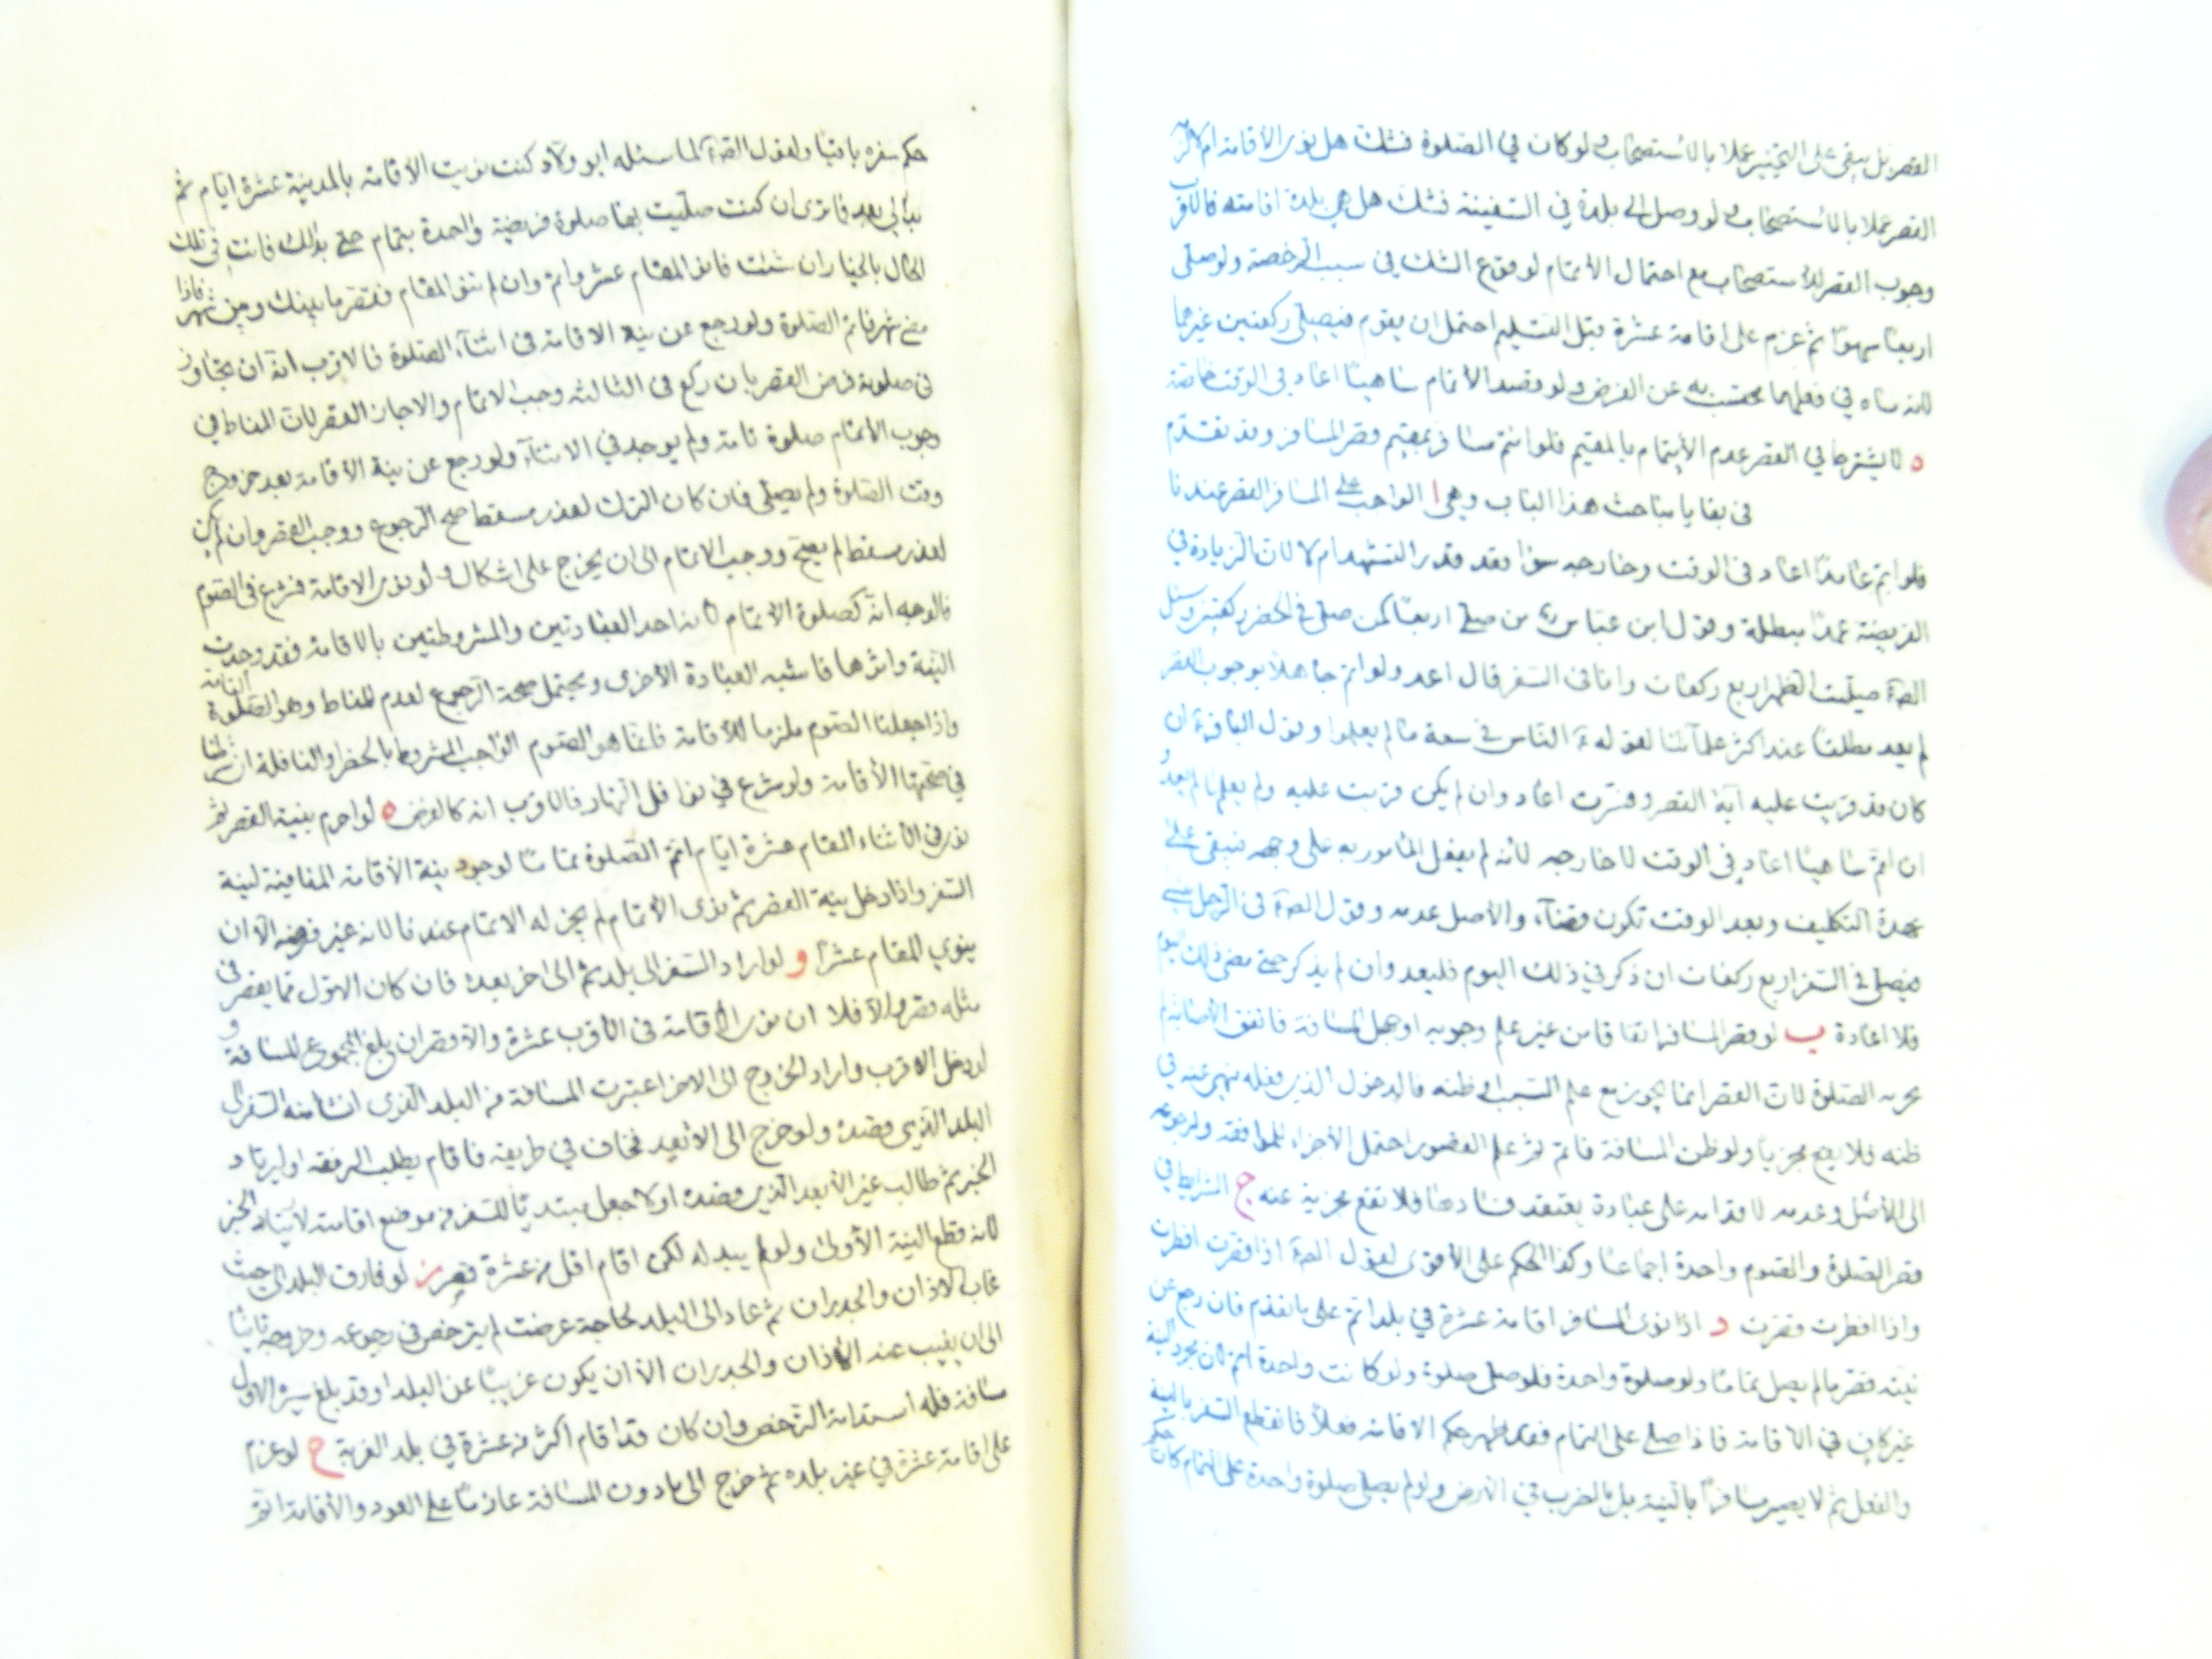 القصر بل يبقى على التخيير عملا بالاستصحاب ولو كان في الصلوة فشك هل نوى الاقامة ام لا لزمه
القصر عملا بالاستصحاب ولو وصل الى بلدة في السفينة فشك هل هي بلدة اقامته فالاقرب
وجوب القصر للاستصحاب مع احتمال الاتمام لوقوع الشك في سبب الرخصة ولو صلى
اربعا سهوا ثم عزم على اقامة عشرة قبل التسليم احتمل ان يقوم فيصلى ركعتين غيرهما
لانه ساه في فعلهما محتسب به عن الفرض ولو قصد الاتمام ساهيا اعاد في الوقت خاصة
ه لا يشترط في القصر عدم الايتمام بالمقيم فلو ائتم مسافر بمقيم قصر المسافر وقد تقدم
في بقايا مباحث هذا الباب وهي ا الواجب على المسافر القصر عندنا
فلو اتم عامدا اعاد في الوقت وخارجه سواء قعد قدر التشهد ام لا لان الزيادة في
الفريضة عمدا مبطلة وقول ابن عباس من صلى اربعا كمن صلى في الحضر ركعتين وسئل
الص صليت الظهر اربع ركعات وانا في السفر قال اعد ولو اتم جاهلا بوجوب القصر
لم يعد مطلقا عند اكثر علمآئنا لقوله ع الناس في سعة ما لم يعلموا وقول الباقر ان
كان قد قريت عليه آية القصر وفسرت اعاد وان لم يكن قريت عليه ولم يعلمها لم يعد و
ان اتم ساهيا اعاد في الوقت لا خارجه لانه لم يفعل المأمور به على وجهه فيبقى على
عهدة التكليف وبعد الوقت تكون قضآء والاصل عدمه وقول الص في الرجل ينسى
فيصلى في السفر اربع ركعات ان ذكر في ذلك اليوم فليعد وان لم يذكر حتى مضى ذلك اليوم
فلا اعادة ب لو قصر المسافر اتفاقا من غير علم وجوبه او جهل المسافة فاتفق الاصابة لم
تجزيه الصلوة لان القصر انما يجوز مع علم السبب او ظنه فالدخول الذي فعله منهى عنه في
ظنه فلا يقع مجزيا ولو ظن المسافة فاتم ثم علم القصور احتمل الاجزاء للموافقة ولرجوعه
الى الاصل وعدمه لاقدامه على عبادة يعتقد فسادها فلا تقع مجزية عنه ج الشرايط في
قصر الصلوة والصوم واحدة اجماعا وكذا الحكم على الاقوى لقول الص اذا قصرت افطرت
واذا افطرت قصرت د اذا نوى المسافر اقامة عشرة في بلد اتم على ما تقدم فان رجع عن
نيته قصر ما لم يصل تماما ولو صلوة واحدة فلو صلى صلوة ولو كانت واحدة اتم لان مجرد النية
غير كاف في الاقامة فاذا صلى على التمام فقد ظهر حكم الاقامة فعلا فانقطع السفر بالنية
والفعل ثم لا يصير مسافرا بالنية بل بالضرب في الارض ولو لم يصلى صلوة واحدة على التمام كان حكم
حكم سفره باقيا ولقول الص لما سئله ابو ولاد كنت نويت الاقامة بالمدينة عشرة ايام ثم
بدا لي بعد فما ترى ان كنت صليت بها صلوة فريضة واحدة بتمام حتى بدا لك فانت في تلك
الحال بالخيار ان شئت فانو المقام عشرا واتم وان لم تنو المقام فقصر ما بينك وبين شهر فاذا
مضى شهر فاتم الصلوة ولو رجع عن نية الاقامة في اثنآء الصلوة فالاقرب انه ان تجاوز
في صلوته فرض القصر بان ركع في الثالثة وجب الاتمام والا جاز القصر لان المناط في
وجوب الاتمام صلوة تامة ولم يوجد في الاثنآء ولو رجع عن نية الاقامة بعد خروج
وقت الصلوة ولم يصلى فان كان الترك لعذر مسقط صح الرجوع ووجب القصر وان لم يكن
لعذر مسقط لم يصح ووجب الاتمام الى ان يخرج على اشكال ولو نوى الاقامة فشرع في الصوم
فالوجه انه كصلوة الاتمام لانه احد العبادتين والمشروطتين بالاقامة فقد وجدت
النية واثرها فاشبه العبادة الاخرى ويحتمل صحة الرجوع لعدم المناط وهو الصلوة التامة
واذا جعلنا الصوم ملزما للاقامة فانما هو الصوم الواجب المشروط بالحضر او النافلة ان شرطنا
في صحتها الاقامة ولو شرع في نوافل النهار فالاقرب انه كالفرض ه لو احرم بنية القصر ثم
نوى في الاثناء المقام عشرة ايام اتم الصلوة تماما لوجود نية الاقامة المنافية لنية
السفر واذا دخل بنية القصر ثم نوى الاتمام لم يجز له الاتمام عندنا لانه غير فرضه الا ان
ينوي المقام عشرا و لو اراد السفر الى بلد ثم الى اخر بعده فان كان الاول مما يقصر في
مثله قصر والا فلا ان نوى الاقامة في الاقرب عشرة والا قصر ان بلغ المجموع المسافة و
لو دخل الاقرب واراد الخروج الى الاخر اعتبرت المسافة من البلد الذي انشا منه السفر الى
البلد الذي قصده ولو خرج الى الابعد فخاف في طريقه فاقام يطلب الرفقة او ليرتاد
الخبر ثم طالب غير الابعد الذي قصده اولا جعل مبتدئا للسفر من موضع اقامته لارتياد الخبر
لانه قطع النية الاولى ولو لم يبد له لكن اقام اقل من عشرة قصر ز لو فارق البلد الى حيث
غاب الاذان والجدران ثم عاد الى البلد لحاجة عرضت لم يترخص في رجوعه وخروجه ثانيا
الى ان يغيب عنه الاذان والجدران الا ان يكون غريبا عن البلد او قد بلغ سيره الاول
مسافة فله استدامة الترخص وان كان قد اقام اكثر من عشرة في بلد الغربة ح لو عزم
على اقامة عشرة في غير بلده ثم خرج الى ما دون المسافة عازما على العود والاقامة اتم